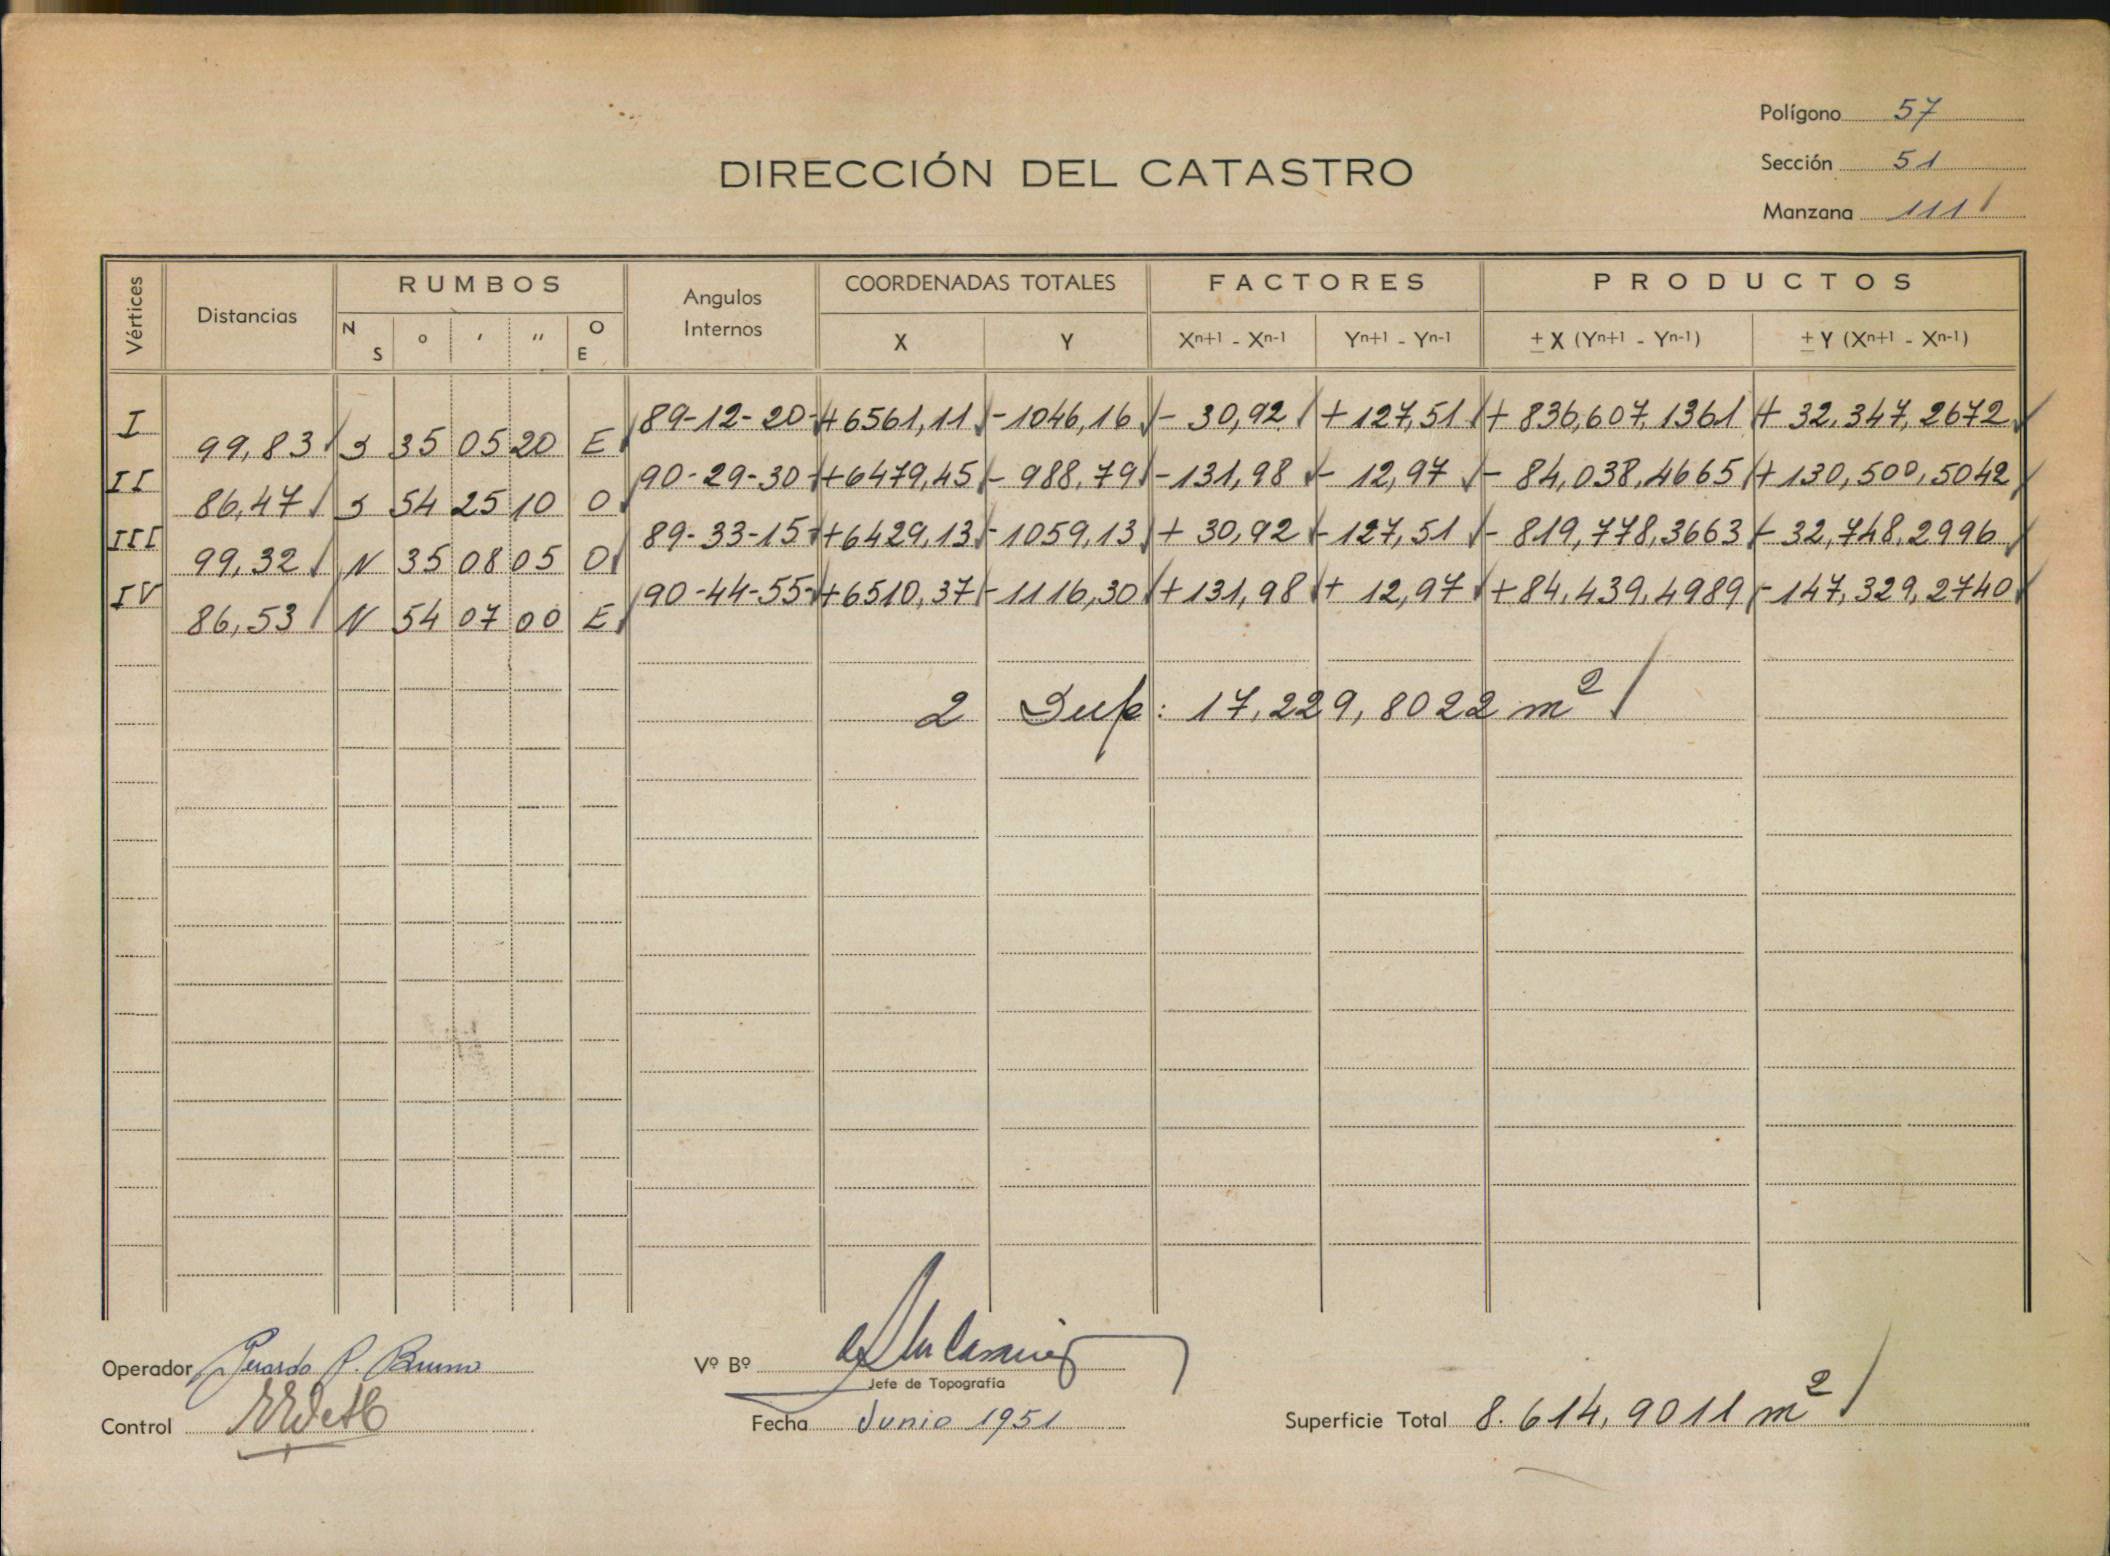 Polígono 57
DIRECCIÓN DEL CATASTRO
Sección 51
Manzana 111
Vértices Distancias RUMBOS Angulos Internos COORDENADAS TOTALES FACTORES PRODUCTOS
N S o ' '' O E X Y Xn+1 - Xn-1 Yn+1 - Yn-1 ± X (Yn+1 - Yn-1) ± Y (Xn+1 - Xn-1)
I 89-12-20 +6561,11 -1046,16 - 30,92 +127,51 + 836,607,1361 + 32.347,2672
99,83 S 35 05 20 E
II 90-29-30 +6479,45 - 988,79 -131,98 - 12,97 - 84,038,4665 +130,500,5042
86,47 S 54 25 10 O
III 89-33-15 +6429,13 -1059,13 + 30,92 -127,51 - 819,778,3663 - 32,748,2996
99,32 N 35 08 05 O
IV 90-44-55 +6510,37 -1116,30 +131,98 + 12,97 +84,439,4989 -147,329,2740
86,53 N 54 07 00 E
2 Sup: 17,229,8022 m²
Operador Gerardo P. Bruno Vº Bº
Jefe de Topografía
Control Fecha Junio 1951 Superficie Total 8.614,9011 m²